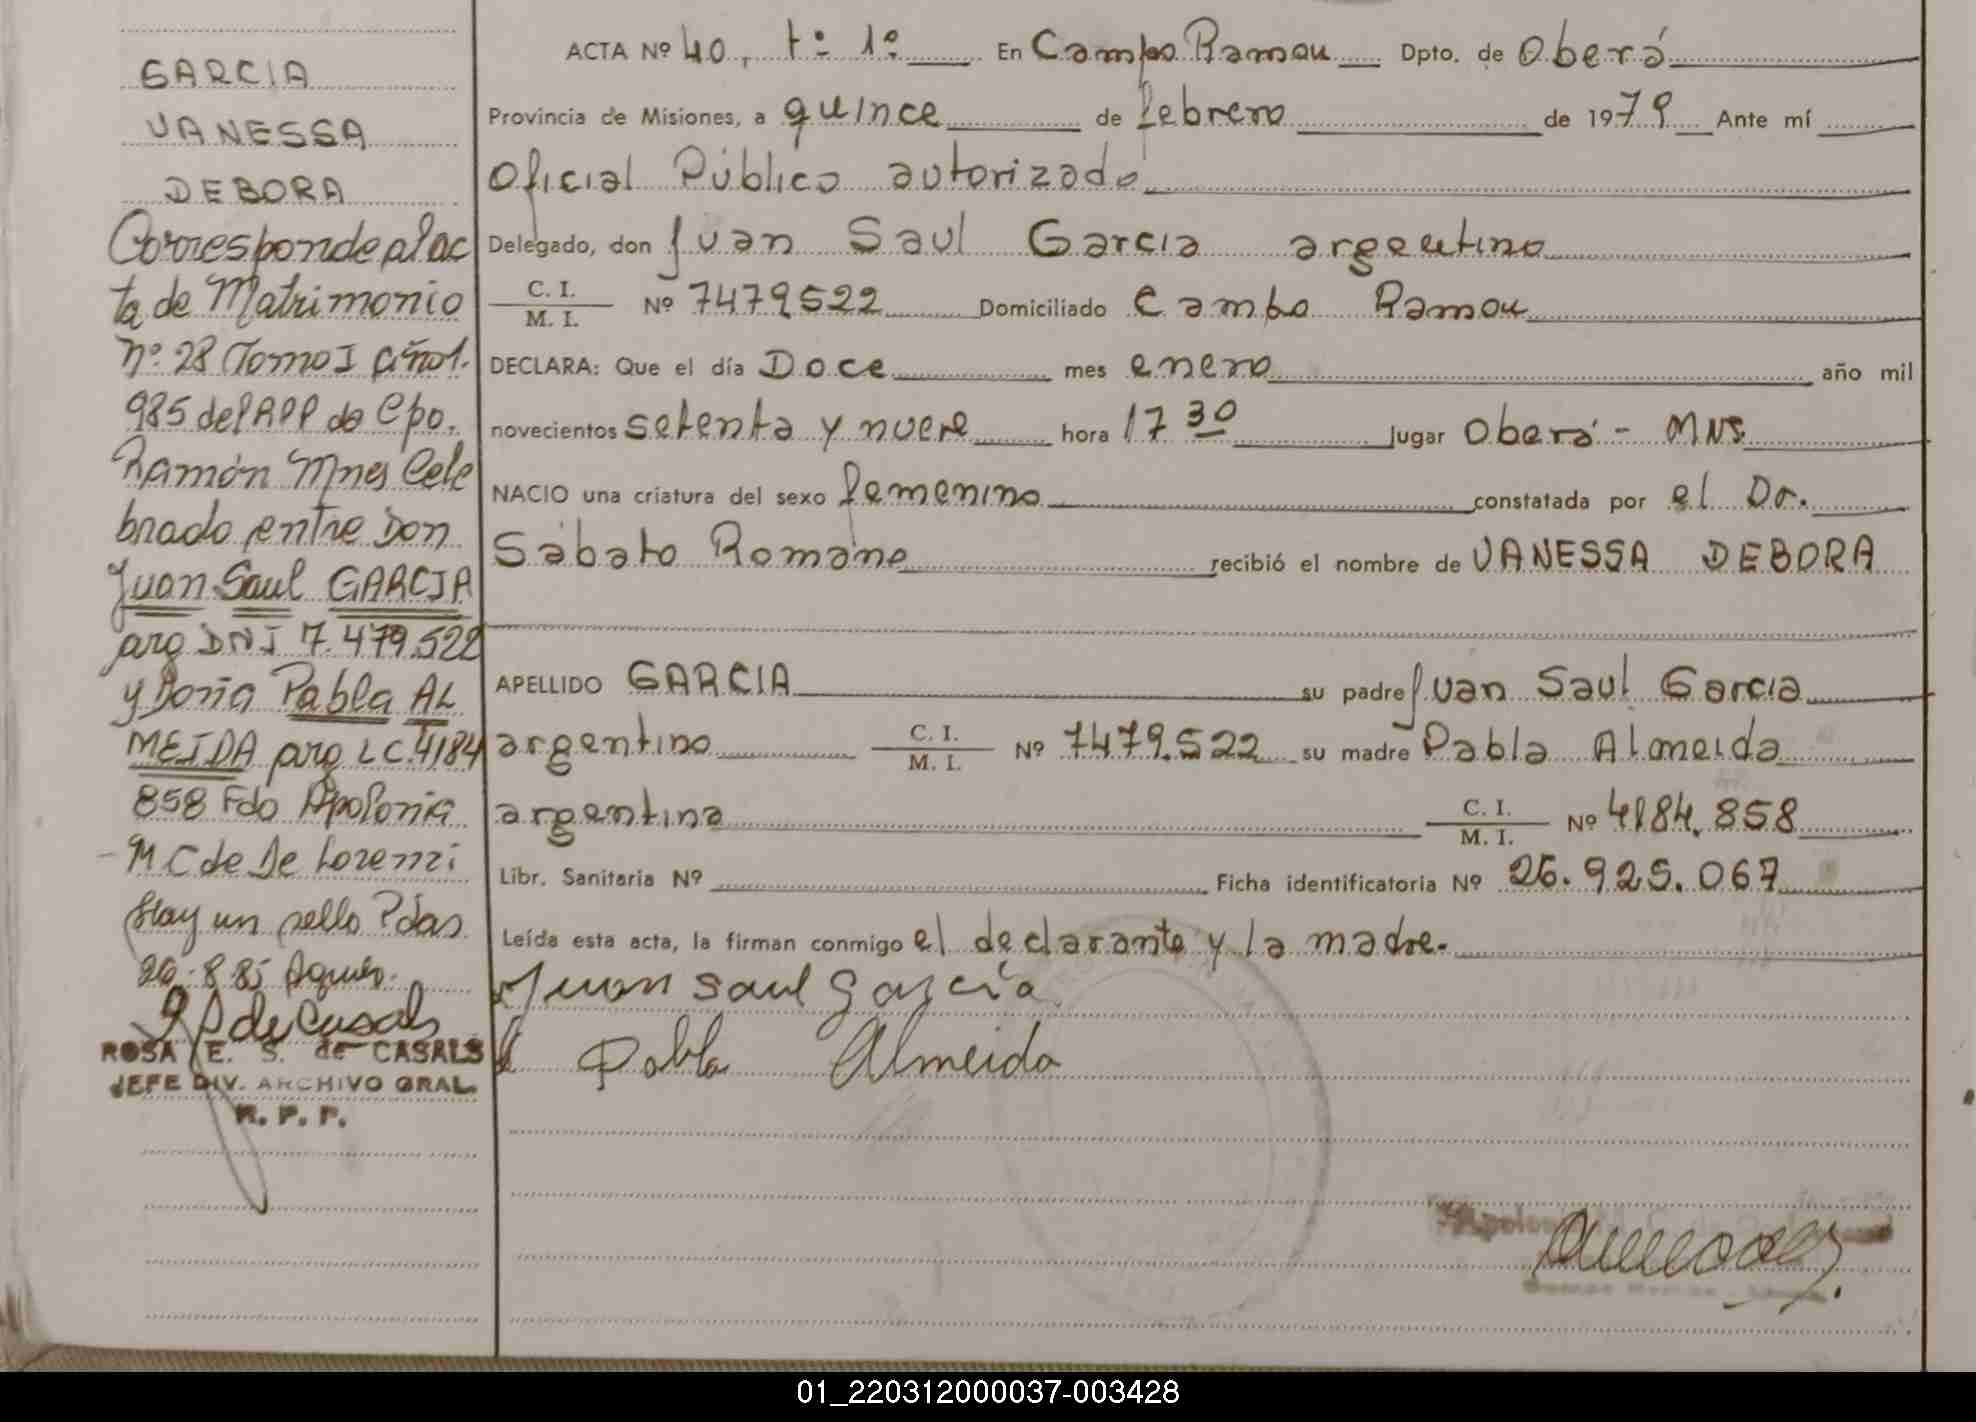 GARCIA
VANESSA
DEBORA
Corresponde al ac
ta de Matrimonio
Nº 28 Tomo I año 1.
985 del RPP de Cpo.
Ramón Mnes Cele
brado entre Don
Juan Saul GARCIA
arg DNI 7.479.522
y Doña Pabla AL
MEIDA arg LC.4184
858 Fdo Apolonia
M C de De Lorenzi
Hay un sello Pdas
26.8.85
ROSA E. S. de CASALS
JEFE DIV. ARCHIVO GRAL.
R. P. P.
ACTA Nº 40, tº 1º En Campo Ramon Dpto. de Oberá
Provincia de Misiones, a quince de febrero de 1979 Ante mí
Oficial Público autorizado
Delegado, don Juan Saul Garcia argentino
C. I.
M. I. Nº 7479522 Domiciliado Campo Ramon
DECLARA: Que el día Doce mes enero año mil
novecientos setenta y nueve hora 17 30 lugar Oberá - MNS.
NACIO una criatura del sexo femenino constatada por el Dr.
Sábato Romano recibió el nombre de VANESSA DEBORA
APELLIDO GARCIA su padre Juan Saul Garcia
argentino C. I.
M. I. Nº 7479.522 su madre Pabla Almeida
argentina C. I.
M. I. Nº 4184.858
Libr. Sanitaria Nº Ficha identificatoria Nº 26.925.067
Leída esta acta, la firman conmigo el declarante y la madre.
Juan Saul García
Pabla Almeida
01_220312000037-003428